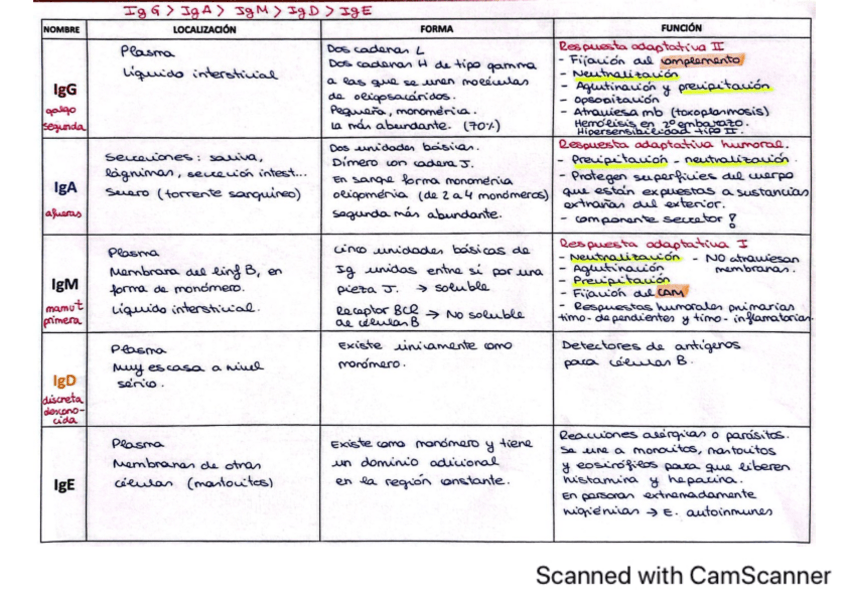 IgG > IgA > IgM > IgD > IgE
NOMBRE LOCALIZACIÓN FORMA FUNCIÓN
IgG
galgo
segunda
Plasma
Líquido intersticial
Dos cadenas L
Dos cadenas H de tipo gamma
a las que se unen moléculas
de oligosacáridos.
Pequeña, monomérica.
La más abundante. (70%)
Respuesta adaptativa II
- Fijación del complemento
- Neutralización
- Aglutinación y precipitación
- Opsonización
- Atraviesa mb (toxoplasmosis)
Hemólisis en 2º embarazo.
Hipersensibilidad tipo II.
IgA
afueras
Secreciones: saliva,
lágrimas, secreción intest...
Suero (torrente sanguíneo)
Dos unidades básicas.
Dímero con cadena J.
En sangre forma monomérica
oligomérica (de 2 a 4 monómeros)
Segunda más abundante.
Respuesta adaptativa humoral.
- Precipitación - neutralización.
- Protegen superficies del cuerpo
que están expuestas a sustancias
extrañas del exterior.
- componente secretor ?
IgM
mamut
primera
Plasma
Membrana del linf B, en
forma de monómero.
Líquido intersticial.
Cinco unidades básicas de
Ig unidas entre sí por una
pieza J. → soluble
Receptor BCR → No soluble
de células B
Respuesta adaptativa I
- Neutralización - NO atraviesan
- Aglutinación membranas.
- Precipitación
- Fijación del CAM
- Respuestas humorales primarias
timo-dependientes y timo-inflamatorias.
IgD
discreta
descono-
cida
Plasma
Muy escasa a nivel
sérico.
Existe únicamente como
monómero.
Detectores de antígenos
para células B.
IgE
Plasma
Membranas de otras
células (mastocitos)
Existe como monómero y tiene
un dominio adicional
en la región constante.
Reacciones alérgicas o parásitos.
Se une a monocitos, mastocitos
y eosinófilos para que liberen
histamina y heparina.
En personas extremadamente
higiénicas → E. autoinmunes
Scanned with CamScanner